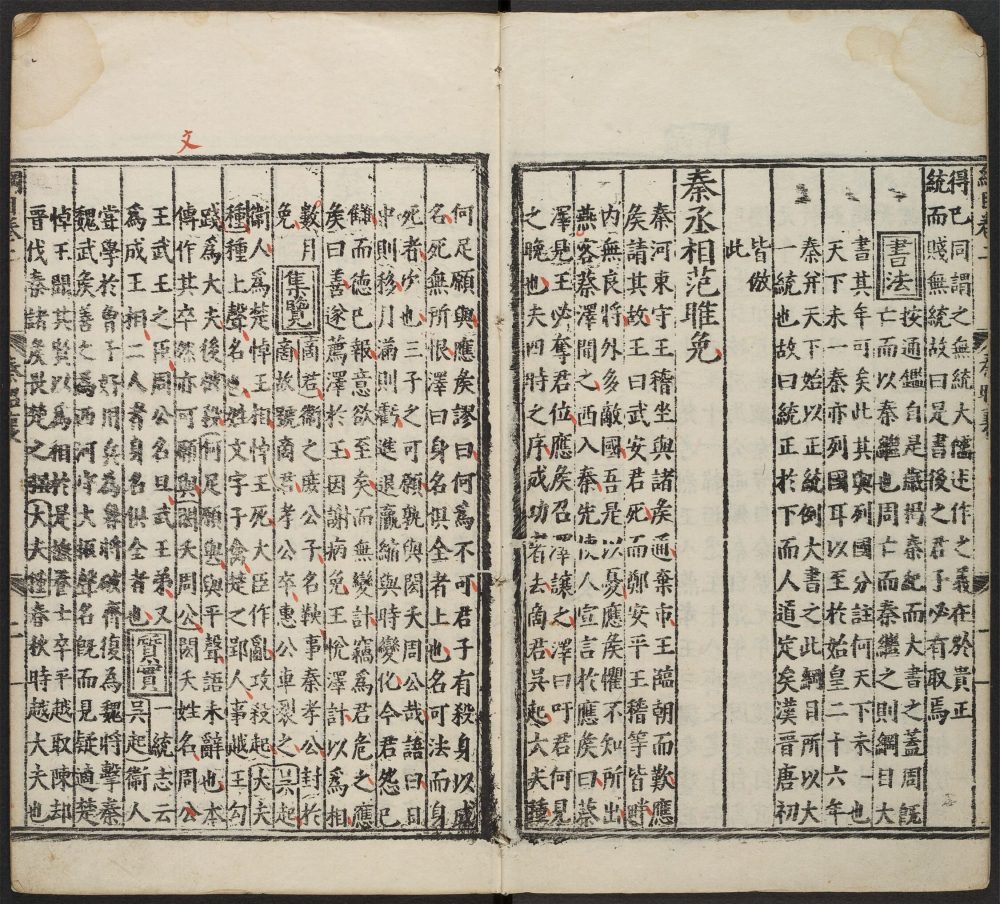 得已同謂之無統大儒述作之義在於貴正
統而賤無統故曰是書後之君子必有取焉
書法 按通鑑自是歲揭秦紀而大書之蓋周旣
亡而以秦繼也周亡而秦繼之則綱目大
書其年可矣此其與列國分註何天下未一也
天下未一秦亦列國耳以至於始皇二十六年
秦并天下始以正統例大書之此綱目所以大
一統也故曰統正於下而人道定矣漢晉唐初
皆倣
此
秦丞相范雎免
秦河東守王稽坐與諸矦通棄市王臨朝而歎應
矦請其故王曰武安君死而鄭安平王稽等皆畔
內無良將外多敵國吾是以憂應矦懼不知所出
燕客蔡澤聞之西入秦先使人宣言於應矦曰蔡
澤見王必奪君位應矦召澤讓之澤曰吁君何見
之晚也夫四時之序成功者去商君吳起大夫種
何足願與應矦謬曰何為不可君子有殺身以成
名死無所恨澤曰身名俱全者上也名可法而身
死者次也三子之可願孰與閎夭周公哉語曰日
中則移月滿則虧進退嬴縮與時變化今君怨已
讎而德已報意欲至矣而無變計竊為君危之應
矦曰善遂薦澤於王因謝病免王悅澤計以為相
數月
免 集覽 商君 衞之庶公子名鞅事秦孝公封於
商故號商君孝公卒惠公車裂之 吳起
衞人為楚悼王相悼王死大臣作亂攻殺起 大夫
種 種上聲名也姓文字子禽楚之郢人事越王勾
踐為大夫後被殺 何足願與 與平聲語末辭也本
傳作其卒然亦可願與 閎夭周公 閎夭姓名周公
王武王之臣周公名旦武王弟又
為成王相二人者身名俱全者也 質實 一統志云
吳起 衞人
嘗學於曾子好用兵為魯將破齊復為魏將擊秦
魏武矦善之為西河守大振聲名旣而見疑適楚
悼王聞其賢以為相於是撫養士卒平越取陳却
晉伐秦諸矦畏楚之强 大夫種 春秋時越大夫也
文